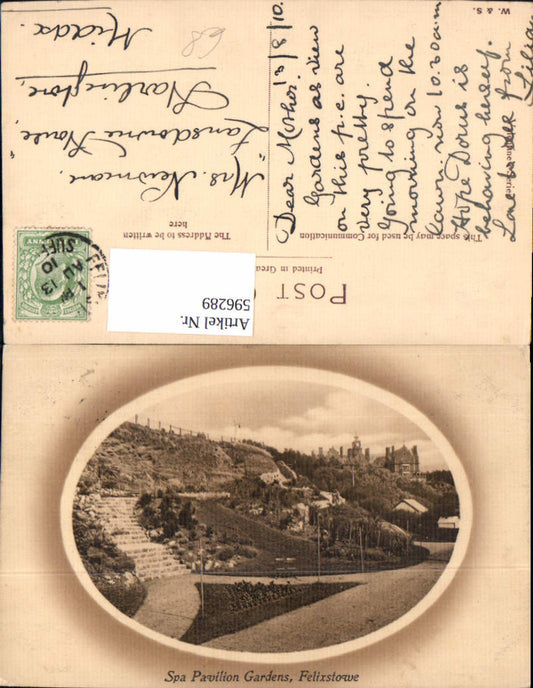 POST C
Printed in Grea
This space may be used for Communication
The Address to be written
here
Artikel Nr.
596289
Dear Mother.
13/8/10.
Gardens as view
on this p.c. are
very pretty.
Going to spend
morning on the
Lawn now 10.30am
Hope Doris is
behaving herself.
Love from
Lilian
Mrs. Newman,
Lansdowne House,
Harlington,
Middx.
68
W. & S.
FELIX
1
AU 13
10
SUFF
Spa Pavilion Gardens, Felixstowe